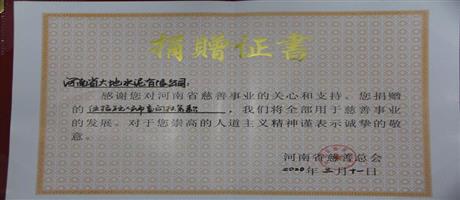 捐赠证书
河南省大地水泥有限公司:
感谢您对河南省慈善事业的关心和支持。您捐赠
的 , 我们将全部用于慈善事业
的发展。对于您崇高的人道主义精神谨表示诚挚的敬
意。
河南省慈善总会
2020年二月十一日